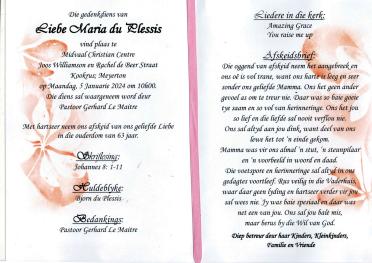 Die gedenkdiens van
Liebe Maria du Plessis
vind plaas te
Midvaal Christian Centre
Joos Williamson en Rachel de Beer Straat
Kookrus; Meyerton
op Maandag, 5 Januarie 2024 om 10h00.
Die diens sal waargeneem word deur
Pastoor Gerhard Le Maitre
Met hartseer neem ons afskeid van ons geliefde Liebe
in die ouderdom van 63 jaar.
Skriflesing:
Johannes 8: 1-11
Huldeblyke:
Bjorn du Plessis
Bedankings:
Pastoor Gerhard Le Maitre
Liedere in die kerk:
Amazing Grace
You raise me up
Afskeidsbrief:
Die oggend van afskeid neem het aangebreek en
ons oë is vol trane, want ons harte is leeg en seer
sonder ons geliefde Mamma. Ons het geen ander
gevoel as om te treur nie. Daar was so baie goeie
tye saam en so vol van herinneringe. Ons het jou
so lief en die liefde sal nooit verflou nie.
Ons sal altyd aan jou dink, want deel van ons
lewe het tot 'n einde gekom.
Mamma was vir ons almal 'n staf, 'n steunpilaar
en 'n voorbeeld in woord en daad.
Die voetspore en herinneringe sal altyd in ons
gedagtes voortleef. Rus veilig in die Vaderhuis,
waar daar geen lyding en hartseer verder vir jou
sal wees nie. Jy was baie spesiaal en daar was
net een van jou. Ons sal jou baie mis,
maar berus by die Wil van God.
Diep betreur deur haar Kinders, Kleinkinders,
Familie en Vriende